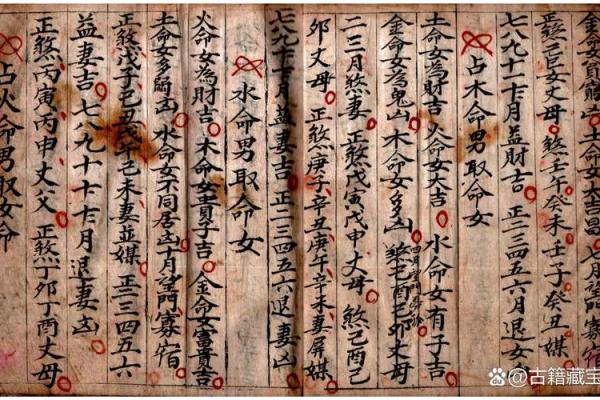 金命女貧賤凶 土命女大吉昌 七月望門寡宿
正煞己亥丈母 煞壬午癸未 壬子癸丑媒
七八九十十一十二月益財吉 正二三四五六月退女凶
占木命男取命女
土命女為財吉 火命女大吉 水命女有子吉
金命女為鬼凶 木命女多凶 四月望門寡宿 煞己酉己卯丈母
二三月煞妻 正煞戊寅戊申丈母 煞己酉己
卯丈母 正煞庚子辛丑庚午辛未妻屏媒
七八九十十一十二月益妻吉 正二三四五六退妻凶
水命男取命女
火命女為財吉 木命女貴子吉 金命女富貴吉
土命女多爵凶 水命女不同居凶 十月望門寡宿
正煞戊子己丑戊午己未妻並媒 正二三四五六
益妻吉 七八九十十一十二月退妻凶
占火命男取女命
正煞丙寅丙申丈父 正煞丁卯丁酉丈母
@古籍藏宝